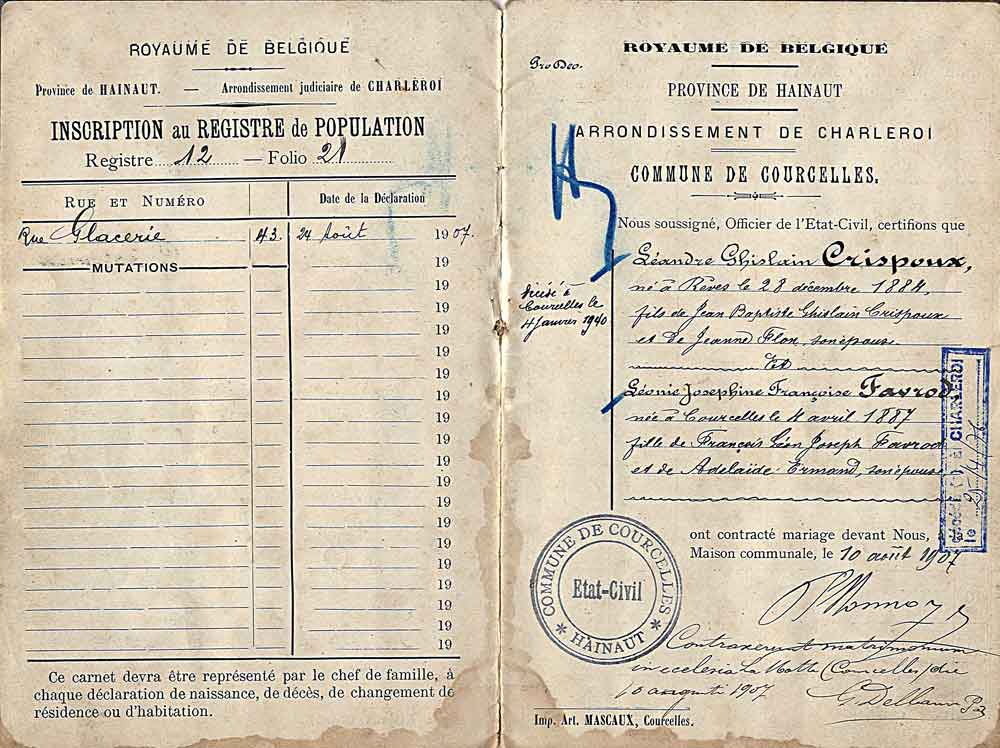 ROYAUME DE BELGIQUE
Province de HAINAUT. — Arrondissement judiciaire de CHARLEROI
INSCRIPTION au REGISTRE de POPULATION
Registre 12 — Folio 21
RUE ET NUMÉRO Date de la Déclaration
Rue Glacerie 43. 24 Août 1907.
MUTATIONS 19
19
19
19
19
19
19
19
19
19
19
19
19
19
19
19
19
19
Ce carnet devra être représenté par le chef de famille, à
chaque déclaration de naissance, de décès, de changement de
résidence ou d'habitation.
ROYAUME DE BELGIQUE
Pro Deo.
PROVINCE DE HAINAUT
ARRONDISSEMENT DE CHARLEROI
COMMUNE DE COURCELLES.
Nous soussigné, Officier de l'Etat-Civil, certifions que
Léandre Ghislain Crispoux,
né à Rèves le 28 décembre 1884,
fils de Jean Baptiste Ghislain Crispoux
et de Jeanne Flon, son épouse.
décédé à
Courcelles le
4 janvier 1940
Et
Léonie Josephine Françoise Favrod,
née à Courcelles le 4 avril 1887
fille de François Léon Joseph Favrod
et de Adelaïde Ermand, son épouse
CHARLEROI
le
ont contracté mariage devant Nous, à la
Maison communale, le 10 août 1907
COMMUNE DE COURCELLES
Etat-Civil
* HAINAUT *
Contraxerunt matrimonium
in ecclesia La Motte (Courcelles) die
10 augusti 1907
Imp. Art. MASCAUX, Courcelles.